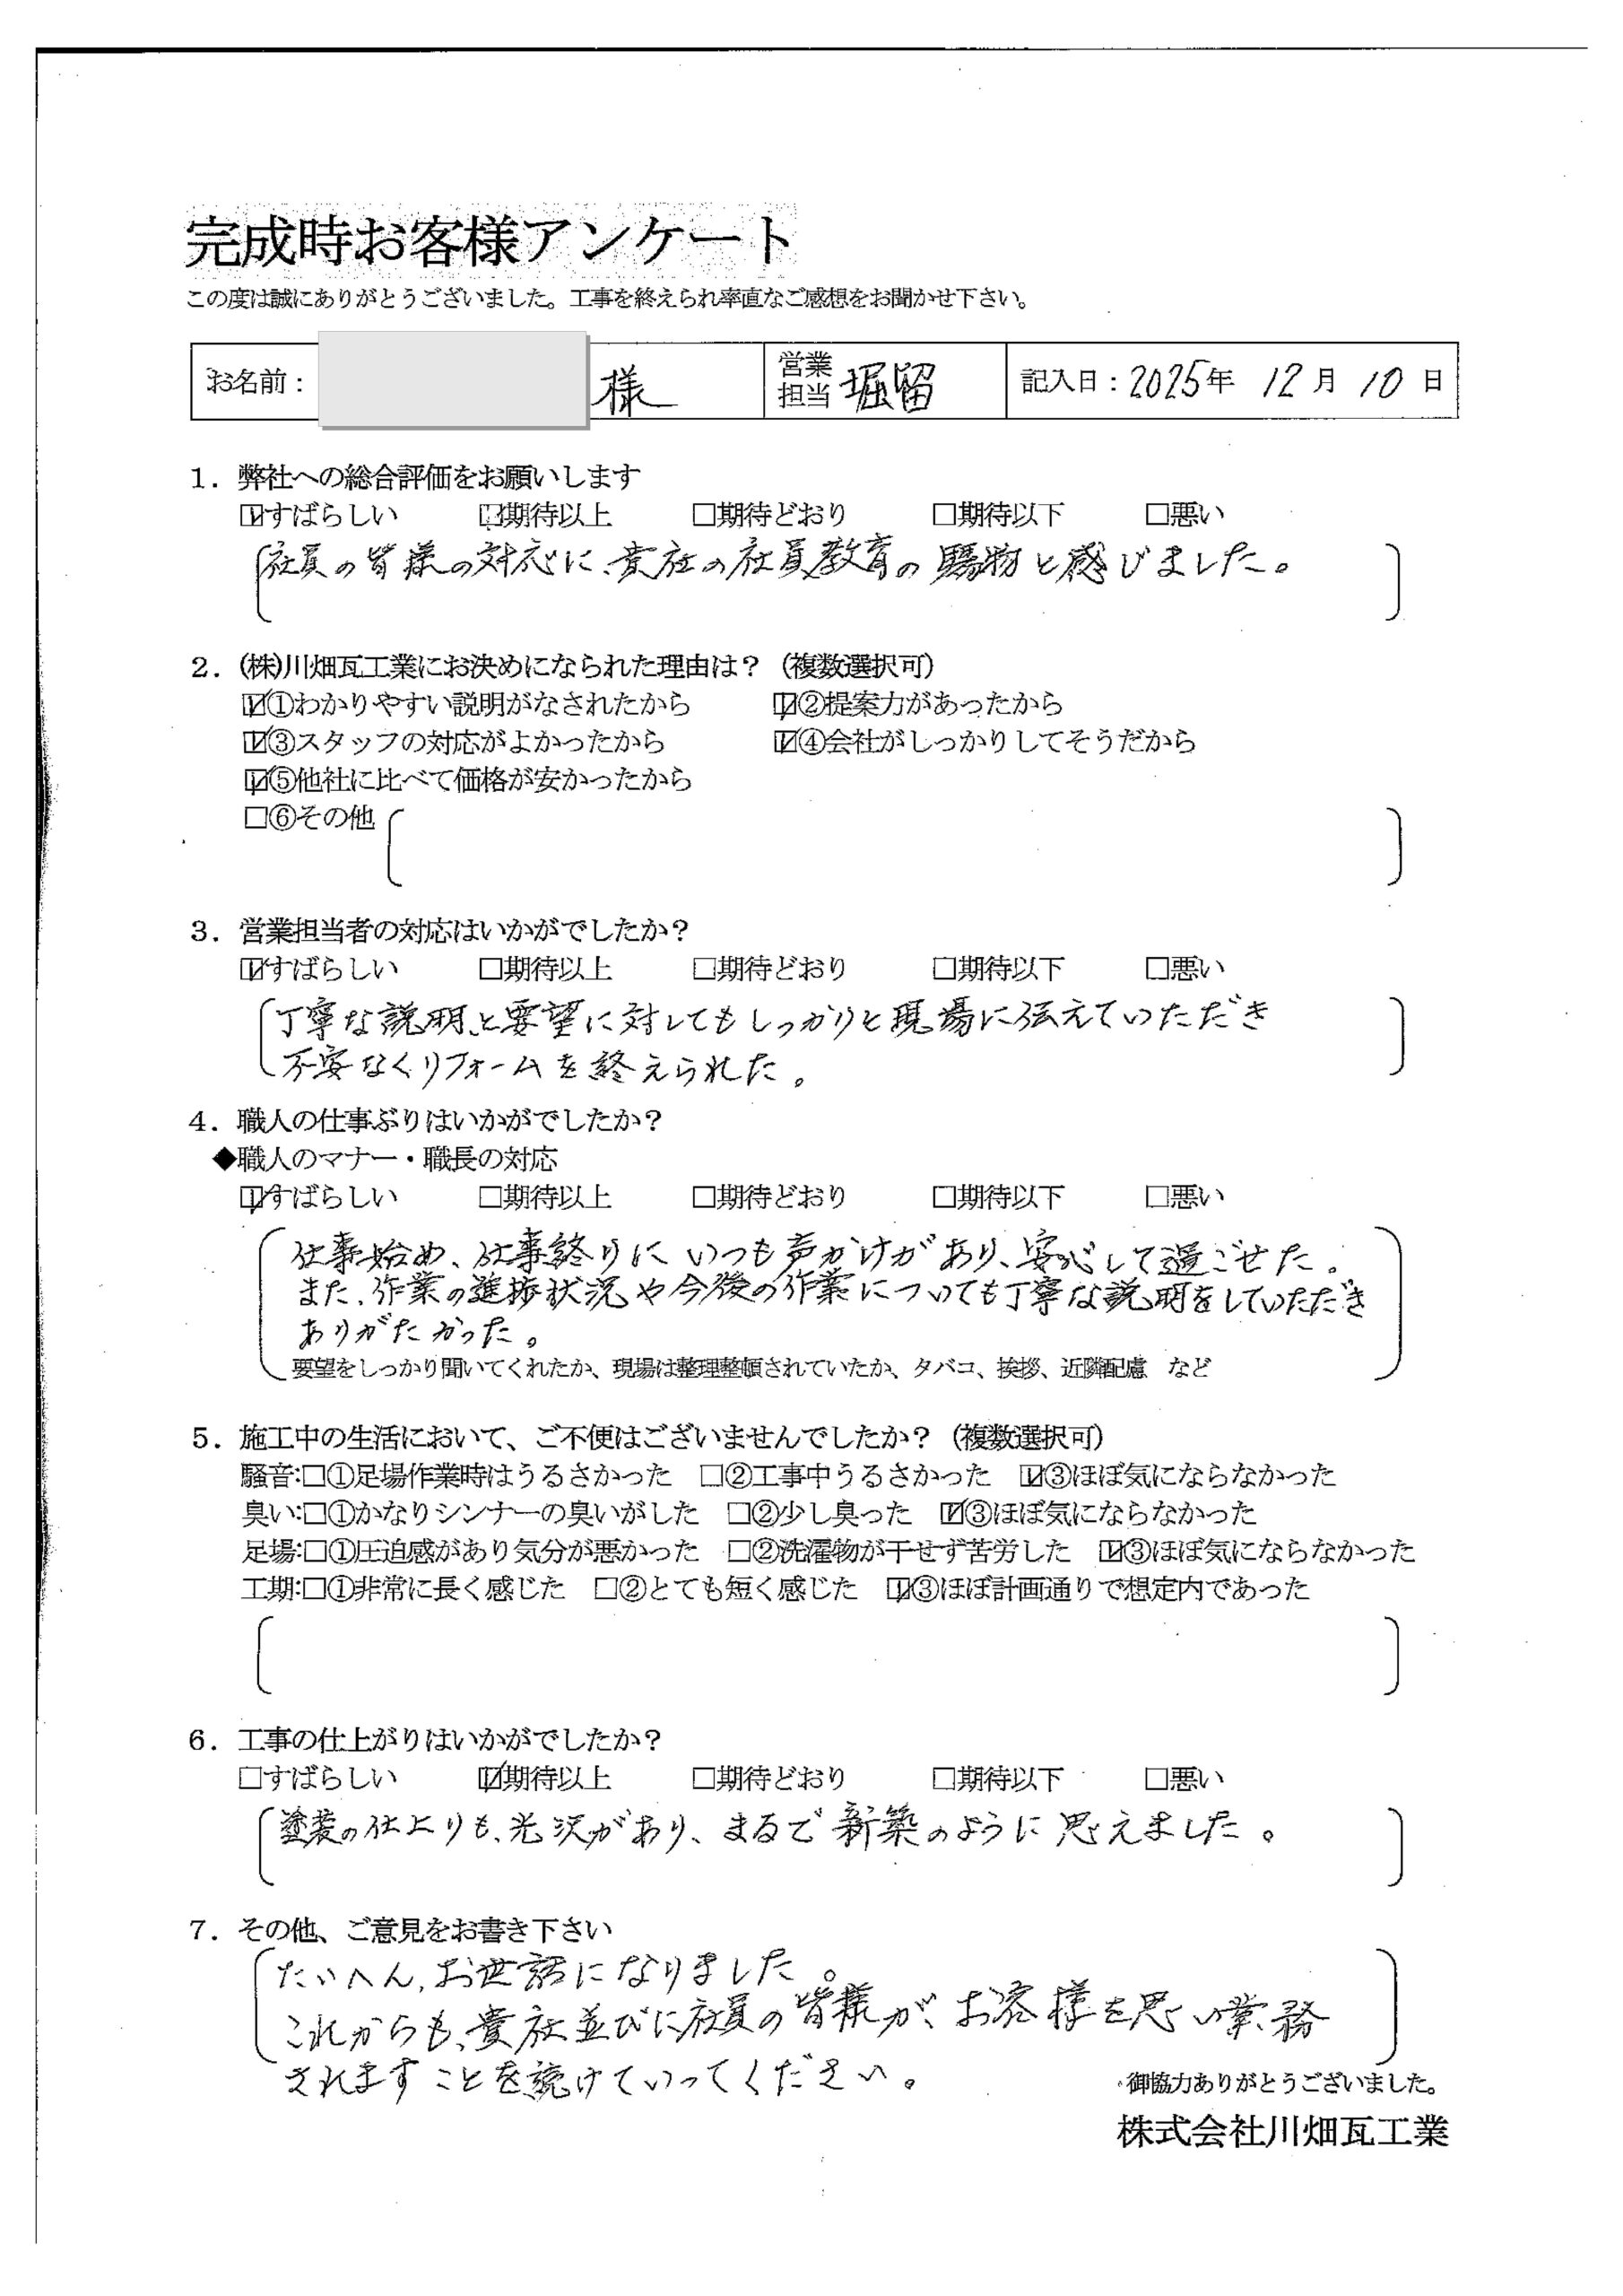 完成時お客様アンケート
この度は誠にありがとうございました。工事を終えられ率直なご感想をお聞かせ下さい。
お名前： 様 営業担当 堀留 記入日：2025年 12月 10日
1．弊社への総合評価をお願いします
☑すばらしい ☑期待以上 □期待どおり □期待以下 □悪い
社員の皆様の対応に、貴社の社員教育の賜物と感じました。
2．(株)川畑瓦工業にお決めになられた理由は？（複数選択可）
☑①わかりやすい説明がなされたから ☑②提案力があったから
☑③スタッフの対応がよかったから ☑④会社がしっかりしてそうだから
☑⑤他社に比べて価格が安かったから
□⑥その他
3．営業担当者の対応はいかがでしたか？
☑すばらしい □期待以上 □期待どおり □期待以下 □悪い
丁寧な説明と要望に対してもしっかりと現場に伝えていただき
不安なくリフォームを終えられた。
4．職人の仕事ぶりはいかがでしたか？
◆職人のマナー・職長の対応
☑すばらしい □期待以上 □期待どおり □期待以下 □悪い
仕事始め、仕事終りにいつも声かけがあり、安心して過ごせた。
また、作業の進捗状況や今後の作業についても丁寧な説明をしていただき
ありがたかった。
要望をしっかり聞いてくれたか、現場は整理整頓されていたか、タバコ、挨拶、近隣配慮 など
5．施工中の生活において、ご不便はございませんでしたか？（複数選択可）
騒音:□①足場作業時はうるさかった □②工事中うるさかった ☑③ほぼ気にならなかった
臭い:□①かなりシンナーの臭いがした □②少し臭った ☑③ほぼ気にならなかった
足場:□①圧迫感があり気分が悪かった □②洗濯物が干せず苦労した ☑③ほぼ気にならなかった
工期:□①非常に長く感じた □②とても短く感じた ☑③ほぼ計画通りで想定内であった
6．工事の仕上がりはいかがでしたか？
□すばらしい ☑期待以上 □期待どおり □期待以下 □悪い
塗装の仕上りも、光沢があり、まるで新築のように思えました。
7．その他、ご意見をお書き下さい
たいへん、お世話になりました。
これからも、貴社並びに社員の皆様が、お客様を思い業務
されますことを続けていってください。
御協力ありがとうございました。
株式会社川畑瓦工業